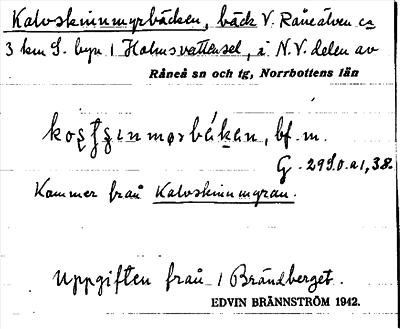 Kalvskinnmyrbäcken, bäck V. Råneälven ca
3 km S. byn 1 Holmsvattensel, i N.V. delen av
Råneå sn och tg, Norrbottens län
bf. m.
G. 29S.o.a1,38.
Kommer från Kalvskinnmyran.
Uppgiften från 1 Brändberget.
EDVIN BRÄNNSTRÖM 1942.